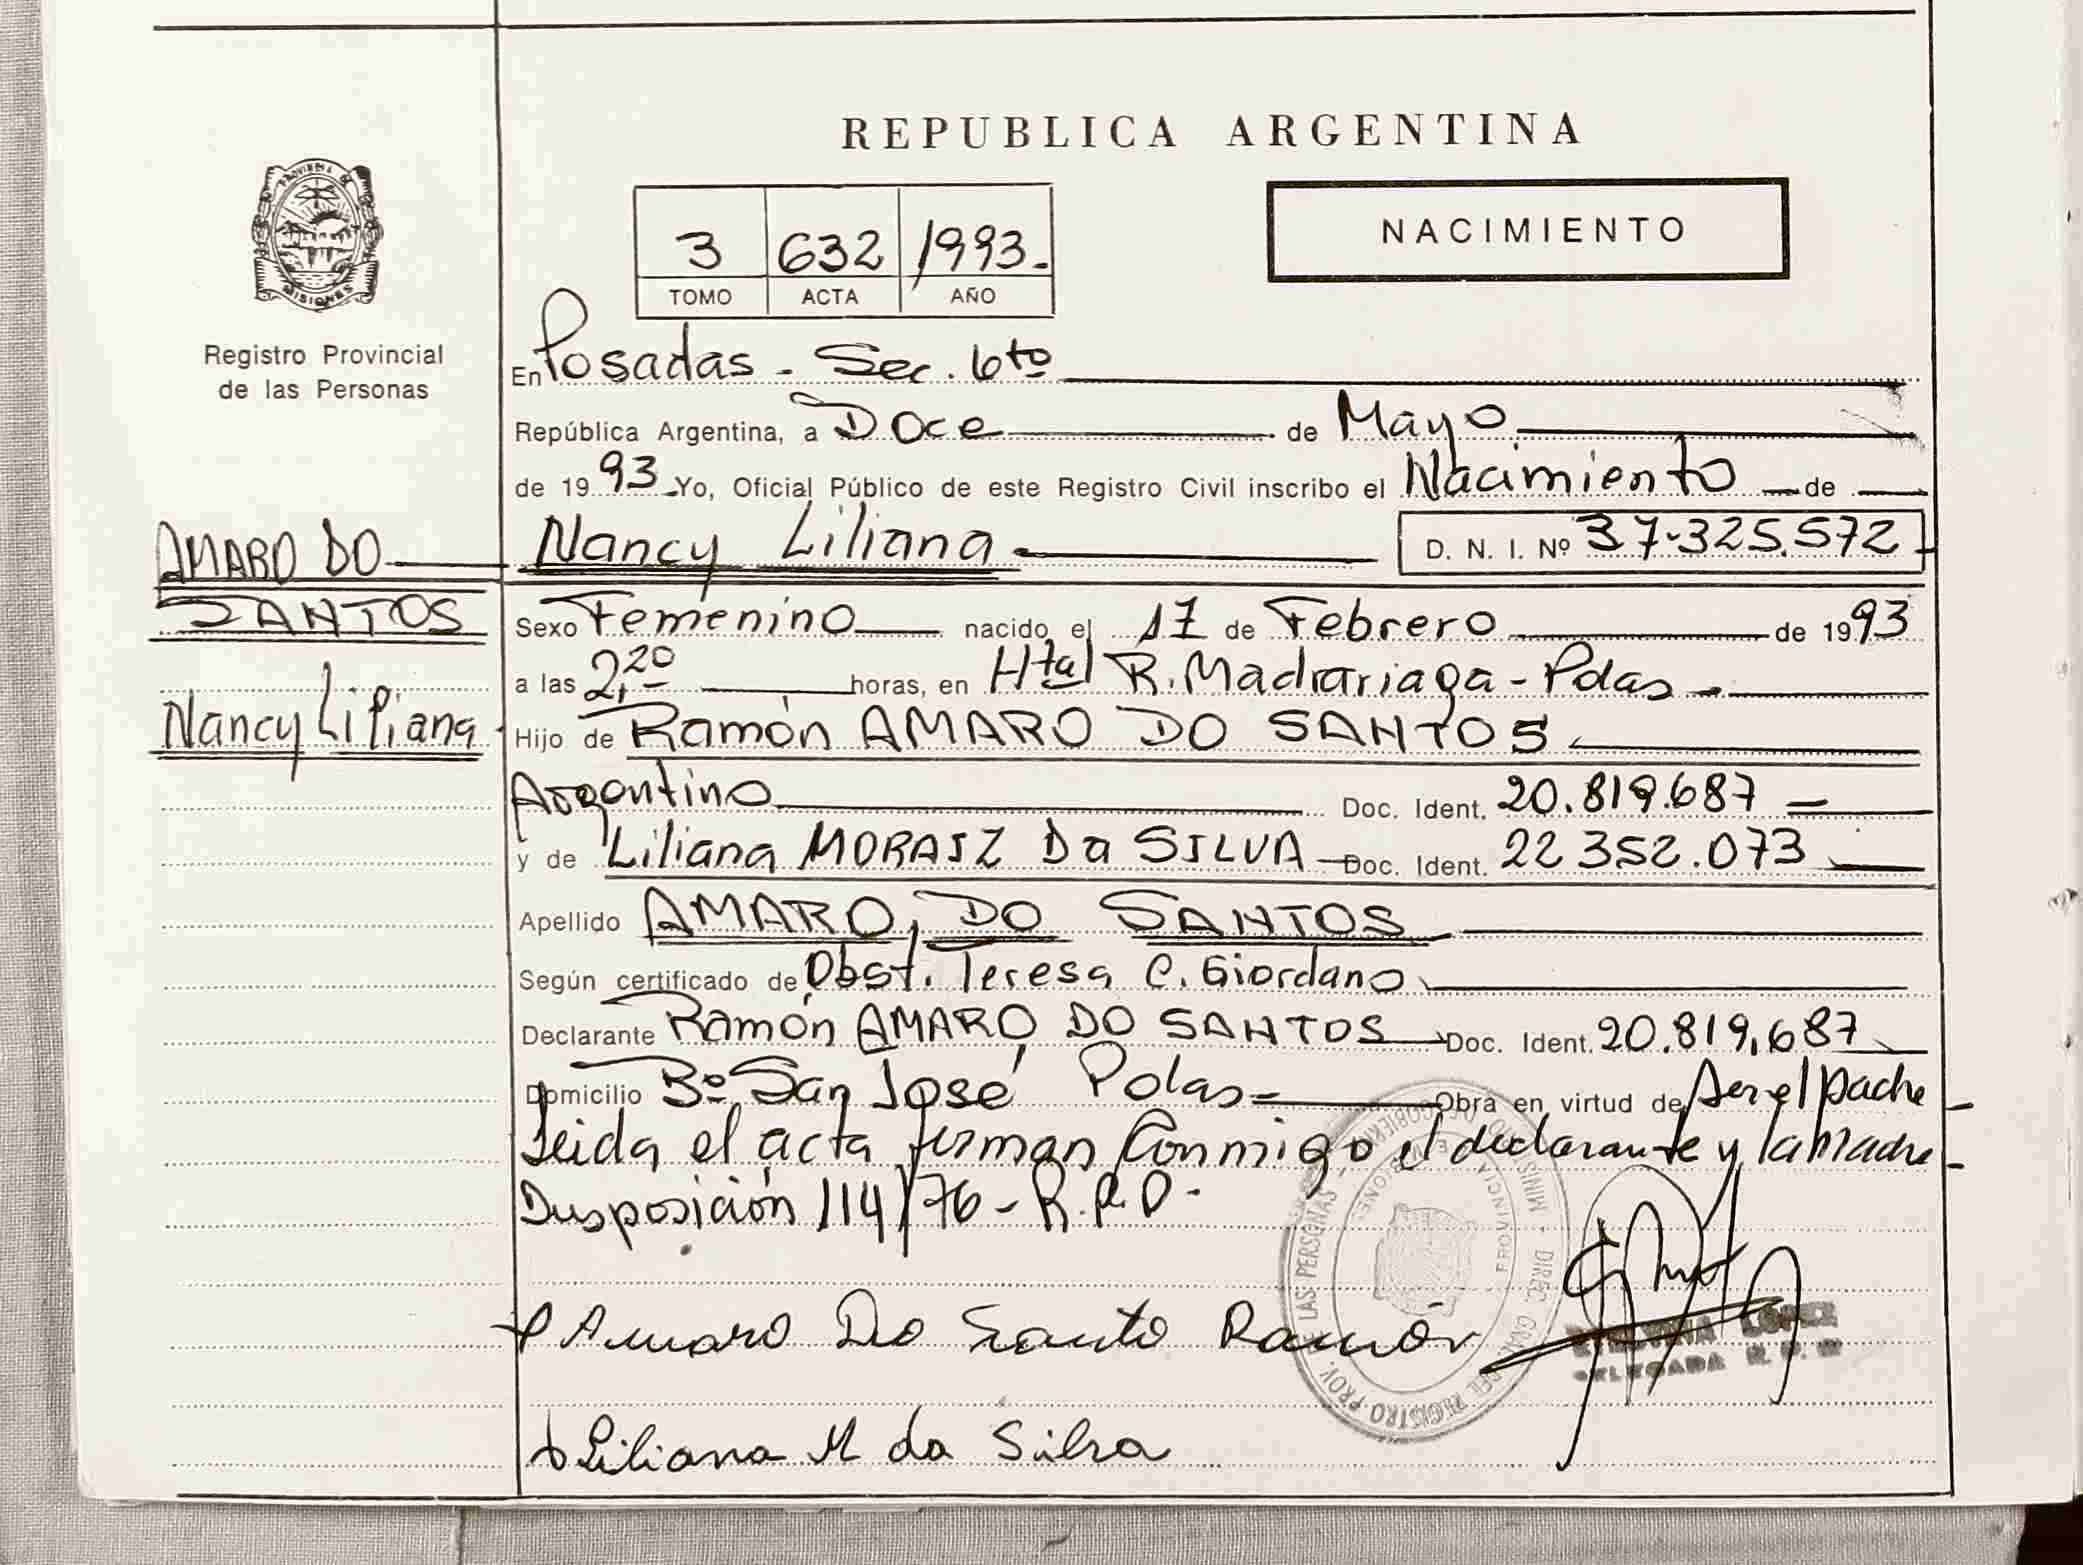 REPUBLICA ARGENTINA
PROVINCIA DE MISIONES
Registro Provincial
de las Personas
3 632 1993.
TOMO ACTA AÑO
NACIMIENTO
En Posadas - Sec. 6to
República Argentina, a Doce de Mayo
de 1993 Yo, Oficial Público de este Registro Civil inscribo el Nacimiento de
AMARO DO
SANTOS
Nancy Liliana
Nancy Liliana D. N. I. Nº 37.325.572
Sexo Femenino nacido el 17 de Febrero de 1993
a las 2,20 horas, en Htal R. Madrariaga - Pdas -
Hijo de Ramón AMARO DO SANTOS
Argentino Doc. Ident. 20.819.687
y de Liliana MORAIZ Da SILVA Doc. Ident. 22 352.073
Apellido AMARO DO SANTOS
Según certificado de Obst. Teresa C. Giordano
Declarante Ramón AMARO DO SANTOS Doc. Ident. 20.819.687
Domicilio Bº San José Pdas Obra en virtud de Ser el padre
Leida el acta firman conmigo el declarante y la madre
Disposición 114/76 - R.P.P -
Amaro Do Santo Ramón
Liliana M da Silva
LOPEZ
DELEGADA R. P.
REGISTRO PROV. DE LAS PERSONAS